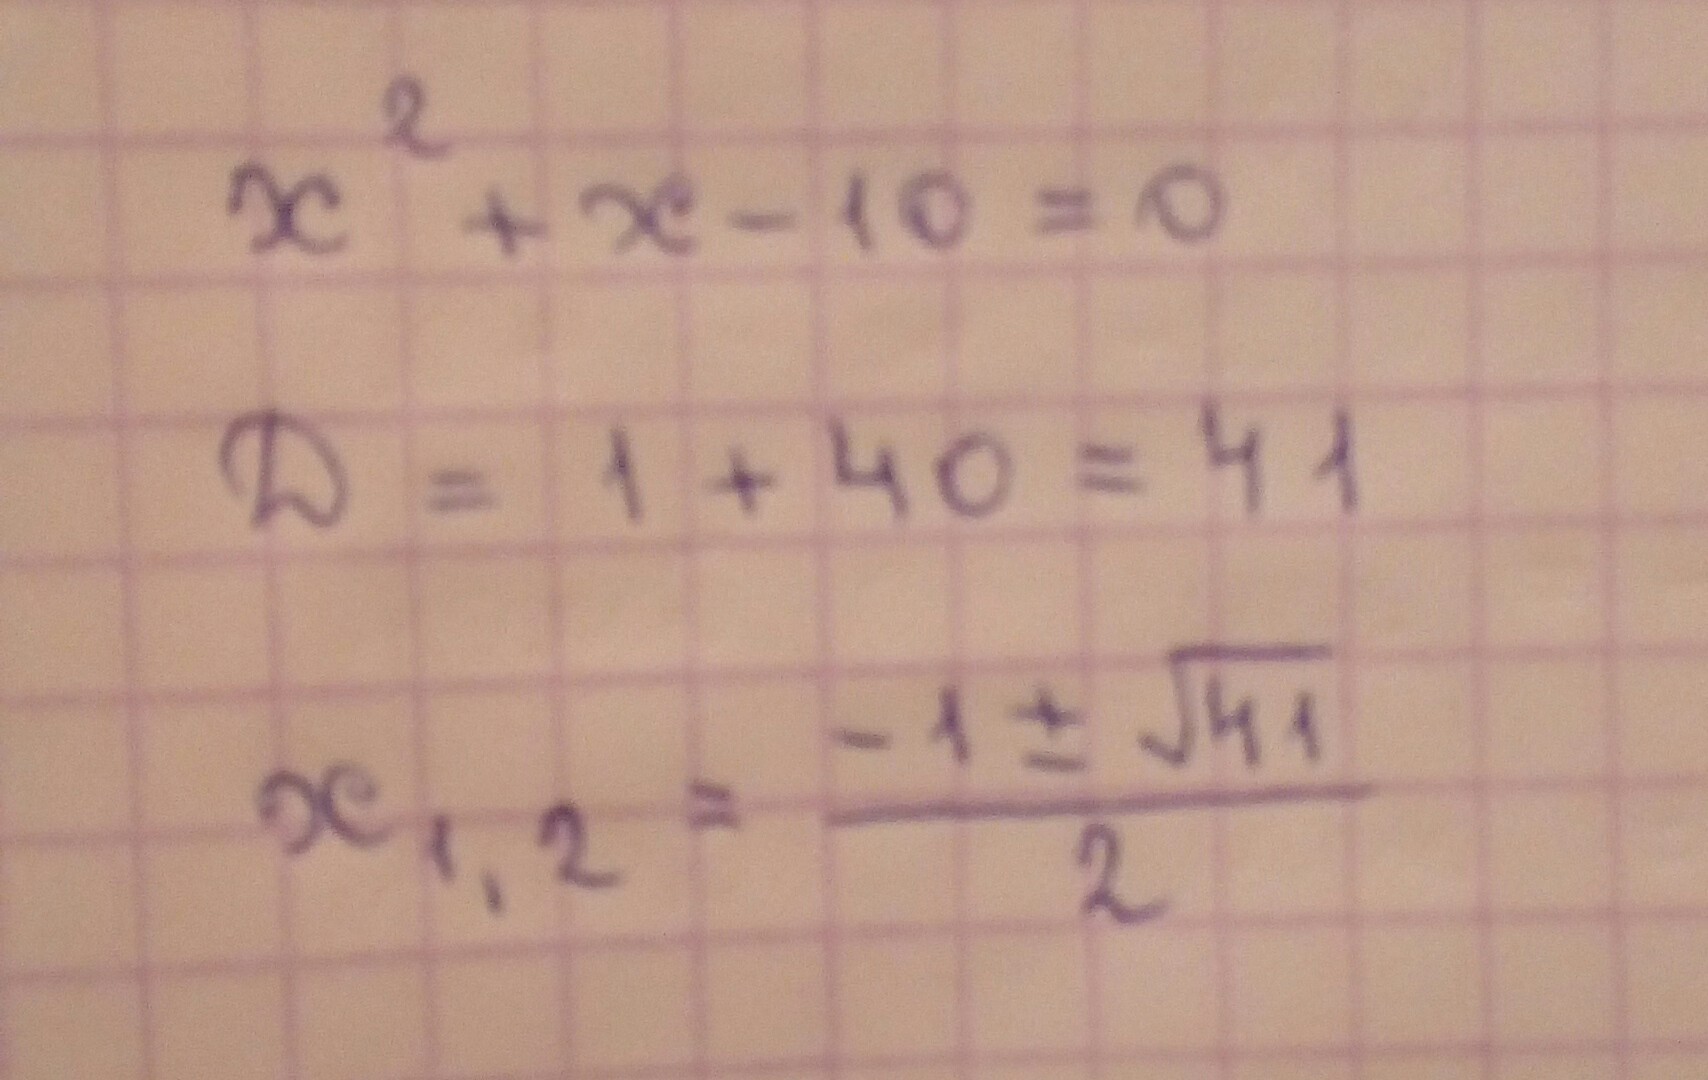 x² + x - 10 = 0
D = 1 + 40 = 41
x₁,₂ = (-1 ± √41) / 2